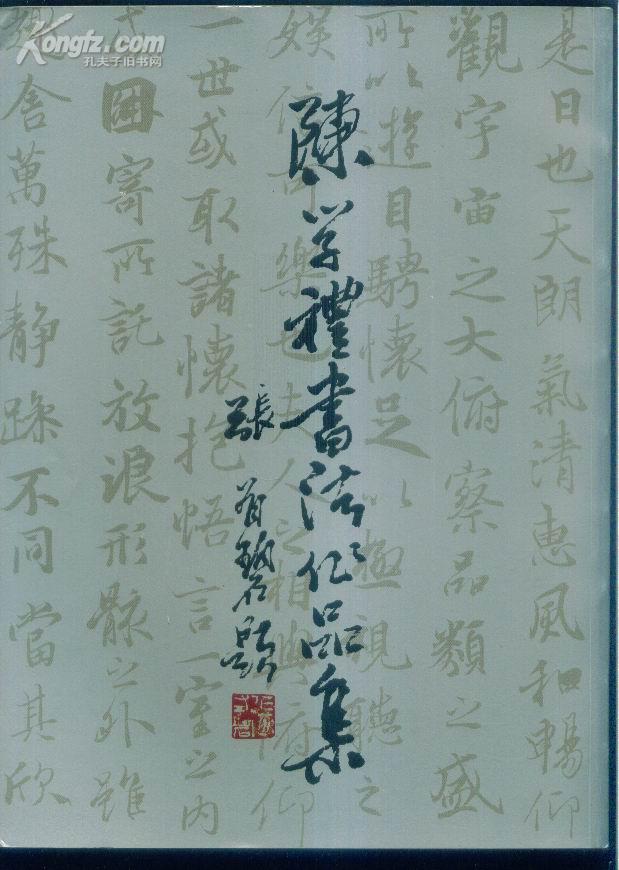 Kongfz.com
孔夫子旧书网
陳学禮書法作品集
張有碧題
是日也天朗氣清惠風和暢仰
觀宇宙之大俯察品類之盛
所以遊目騁懷足以極視聽之
娛信可樂也夫人之相與俯仰
一世或取諸懷抱悟言一室之内
或因寄所託放浪形骸之外雖
趣舍萬殊静躁不同當其欣